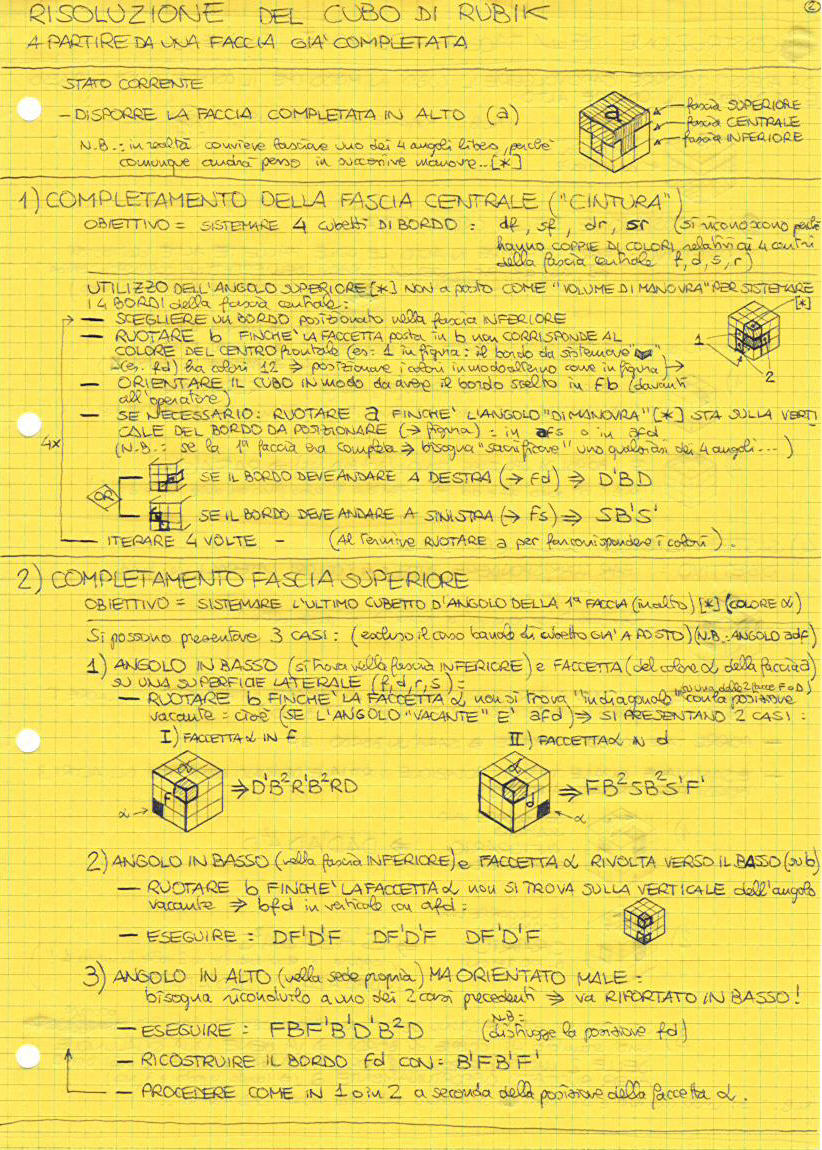 RISOLUZIONE DEL CUBO DI RUBIK
2
A PARTIRE DA UNA FACCIA GIA' COMPLETATA
STATO CORRENTE
- DISPORRE LA FACCIA COMPLETATA IN ALTO (a)
a
fascia SUPERIORE
fascia CENTRALE
fascia INFERIORE
N.B.: in realtà conviene lasciare uno dei 4 angoli libero, perché
comunque andrà perso in successive manovre..[*]
1) COMPLETAMENTO DELLA FASCIA CENTRALE ("CINTURA")
OBIETTIVO = SISTEMARE 4 cubetti DI BORDO : df, sf, dr, sr (si riconoscono perché
hanno COPPIE DI COLORI relativi ai 4 centri
della fascia centrale f, d, s, r)
UTILIZZO DELL'ANGOLO SUPERIORE [*] NON a posto COME "VOLUME DI MANOVRA" PER SISTEMARE
I 4 BORDI della fascia centrale:
[*]
— SCEGLIERE UN BORDO posizionato nella fascia INFERIORE
— RUOTARE b FINCHE' LA FACCETTA posta in b non CORRISPONDE AL
COLORE DEL CENTRO frontale (es: 1 in figura: il bordo da sistemare
(es. fd) ha colori 12 ⇒ posizionare i colori in modo come in figura) →
1
2
— ORIENTARE IL CUBO IN modo da avere il bordo scelto in fb (davanti
all'operatore)
— SE NECESSARIO: RUOTARE a FINCHE' L'ANGOLO "DI MANOVRA" [*] STA SULLA VERTI
CALE DEL BORDO DA POSIZIONARE (→ figura) : in afs o in afd
4x
(N.B.: se la 1ª faccia era completa ⇒ bisogna "sacrificare" uno qualsiasi dei 4 angoli...)
OR
SE IL BORDO DEVE ANDARE A DESTRA (→ fd) ⇒ D'BD
SE IL BORDO DEVE ANDARE A SINISTRA (→ fs) ⇒ SB'S'
— ITERARE 4 VOLTE — (Al termine RUOTARE a per far corrispondere i colori).
2) COMPLETAMENTO FASCIA SUPERIORE
OBIETTIVO = SISTEMARE L'ULTIMO CUBETTO D'ANGOLO DELLA 1ª FACCIA (in alto) [*] (COLORE α)
Si possono presentare 3 CASI: (escluso il caso banale di cubetto GIA' A POSTO) (N.B.: ANGOLO adf)
1) ANGOLO IN BASSO (si trova nella fascia INFERIORE) e FACCETTA (del colore α della faccia a)
SU UNA SUPERFICIE LATERALE (f, d, r, s) :
su una delle 2 facce F o D
— RUOTARE b FINCHE' LA FACCETTA α non si trova "in diagonale" con la posizione
vacante : cioè (SE L'ANGOLO "VACANTE" E' afd) ⇒ SI PRESENTANO 2 CASI :
I) FACCETTA α IN f
II) FACCETTA α IN d
α
f
α
⇒ D'B²R'B²RD
α
d
α
⇒ FB²SB²S'F'
2) ANGOLO IN BASSO (nella fascia INFERIORE) e FACCETTA α RIVOLTA VERSO IL BASSO (su b)
— RUOTARE b FINCHE' LA FACCETTA α non SI TROVA SULLA VERTICALE dell'angolo
vacante ⇒ bfd in verticale con afd :
— ESEGUIRE : DF'D'F DF'D'F DF'D'F
3) ANGOLO IN ALTO (nella sede propria) MA ORIENTATO MALE :
bisogna ricondurlo a uno dei 2 casi precedenti ⇒ va RIPORTATO IN BASSO!
— ESEGUIRE : FBF'B'D'B²D (N.B.: distrugge la posizione fd)
— RICOSTRUIRE IL BORDO fd CON : B'FB'F'
— PROCEDERE COME IN 1 o in 2 a seconda della posizione della faccetta α.